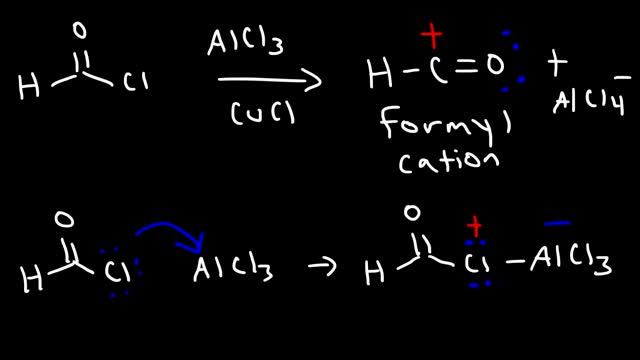 O
H Cl
AlCl3
CuCl
+
H-C=O + AlCl4-
formyl
cation
O
H Cl AlCl3 →
O
+ -
H Cl-AlCl3